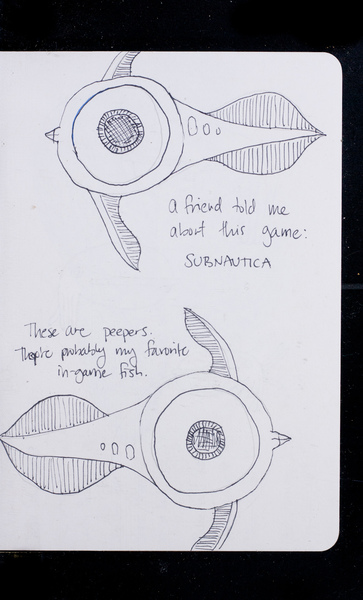 a friend told me
about this game:
SUBNAUTICA
These are peepers.
They're probably my favorite
in-game fish.